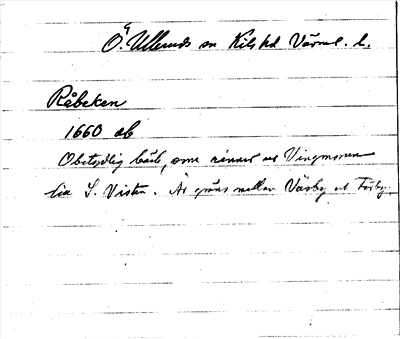 Ö. Ullerud sn Kils hd Värml. l.
Råbeken
1660 ab
Obetydlig bäck, som rinner ur Vingmossen
till S. Visten. Är gräns mellan Väsby och Torby.